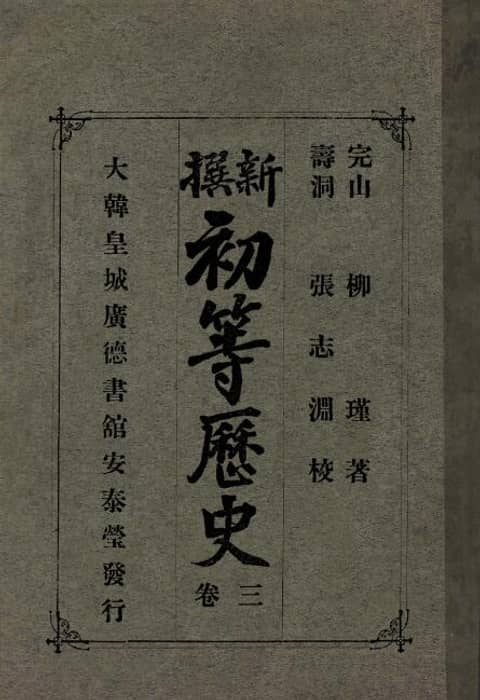 完山 柳瑾著
壽洞 張志淵校
新撰
初等歷史
卷三
大韓皇城廣德書舘安泰瑩發行